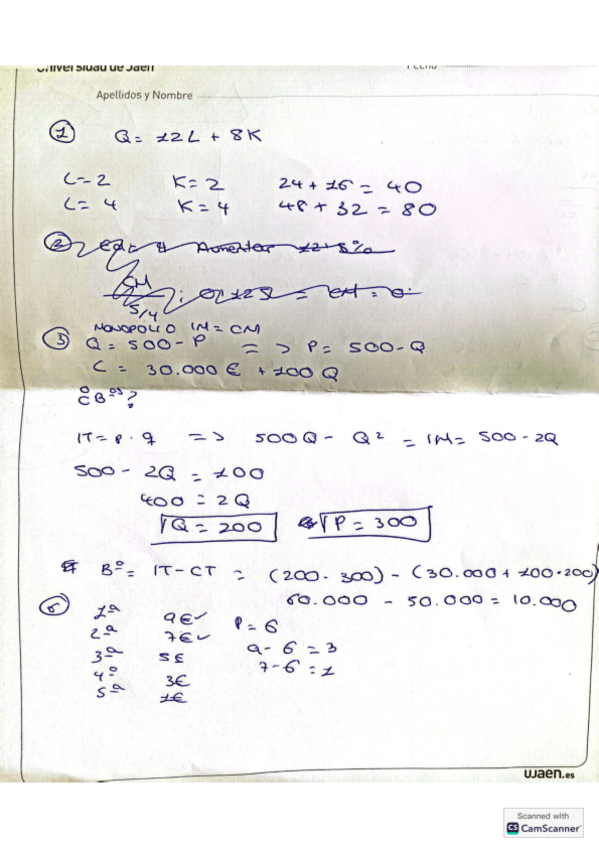 Universidad de Jaén
Fecha
Apellidos y Nombre
① Q = 12L + 8K
L = 2 K = 2 24 + 16 = 40
L = 4 K = 4 48 + 32 = 80
② Aumentar
CM
5/4
MONOPOLIO IM = CM
③ Q = 500 - P => P = 500 - Q
C = 30.000 € + 100 Q
IT = P · q => 500Q - Q² = IM = 500 - 2Q
500 - 2Q = 100
400 = 2Q
Q = 200 P = 300
Bº = IT - CT = (200 · 300) - (30.000 + 100 · 200)
60.000 - 50.000 = 10.000
⑥ 1ª 9€ ✓ P = 6
2ª 7€ ✓ 9 - 6 = 3
3ª 5€ 7 - 6 = 1
4º 3€
5ª 1€
ujaen.es
Scanned with
CS CamScanner